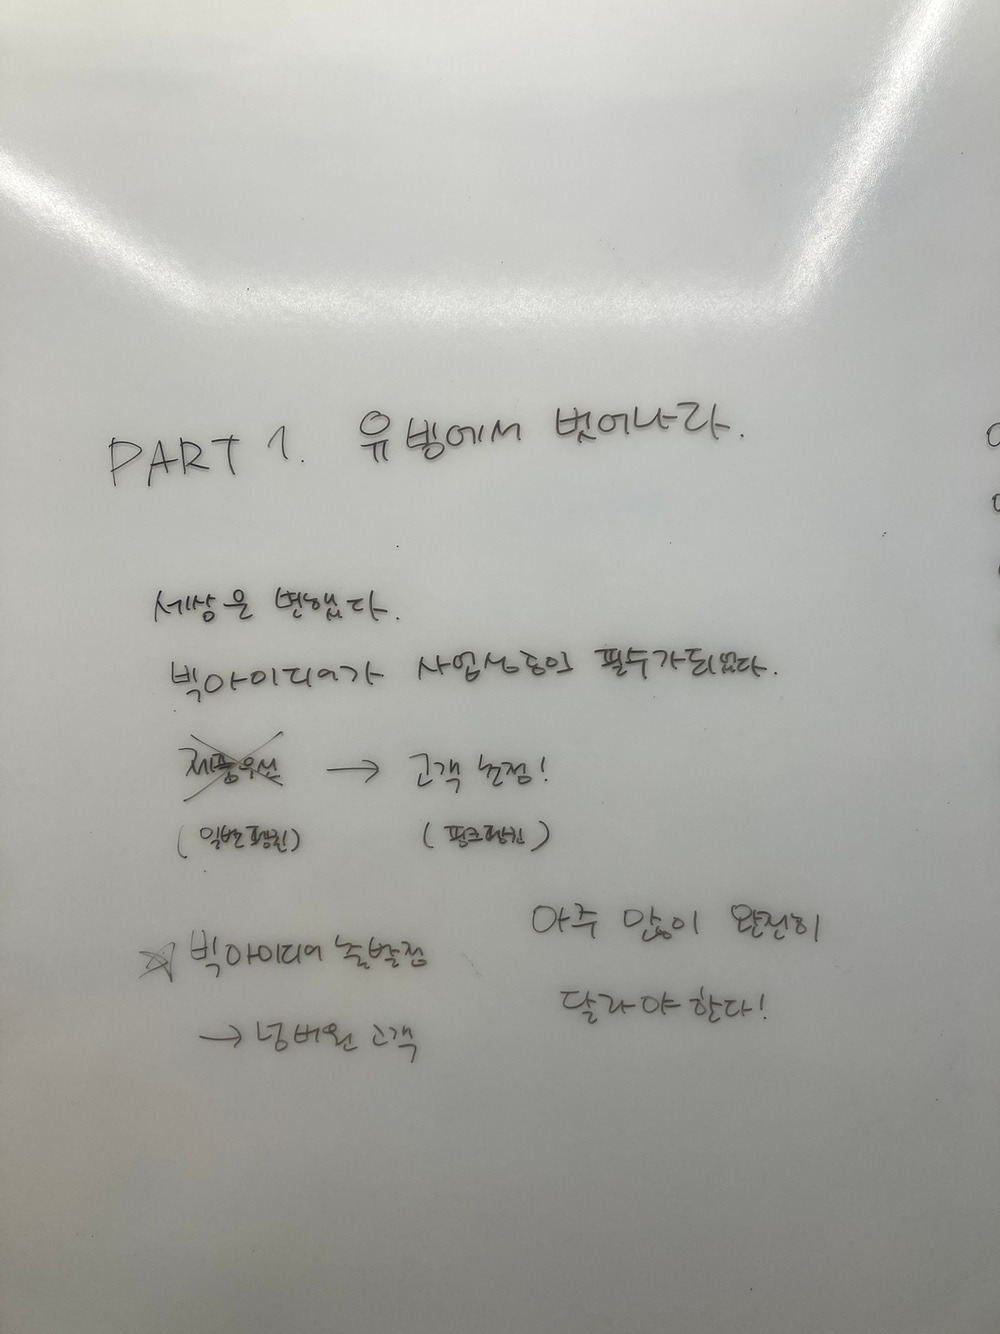 PART 1. 유빙에서 벗어나라.
세상은 변했다.
빅아이디어가 사업성공의 필수가되었다.
제품우선 → 고객 초점!
(일반펭귄) (핑크펭귄)
☆ 빅아이디어 출발점
→ 넘버원 고객
아주 많이 완전히
달라야 한다!